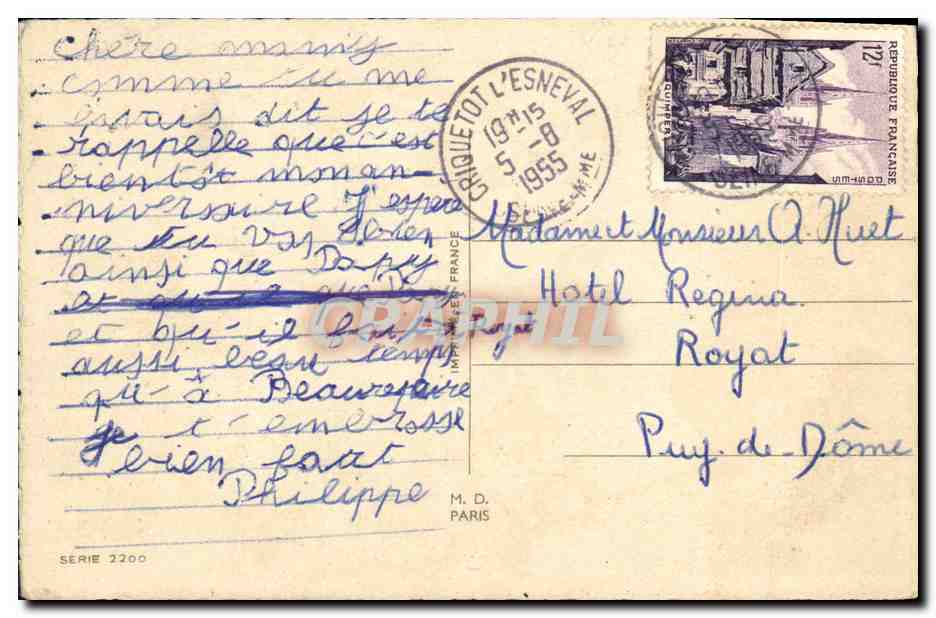 chère mamy
comme tu me
l'avais dit je te
rappelle que c'est
bientôt mon an-
niversaire J'espère
que tu vas bien
ainsi que Papy
et qu'il fait à Royat
aussi beau temps
qu'à Beaurepaire
je t'embrasse
bien fort
Philippe
SERIE 2200
IMPRIMÉ EN FRANCE
M. D.
PARIS
CRIQUETOT L'ESNEVAL
19H15
5 -8
1955
SEINE-MME
RÉPUBLIQUE FRANÇAISE
12F
POSTES
QUIMPER
Madame et Monsieur A. Huet
Hotel Regina
Royat
Puy-de-Dôme
CPAPHIL